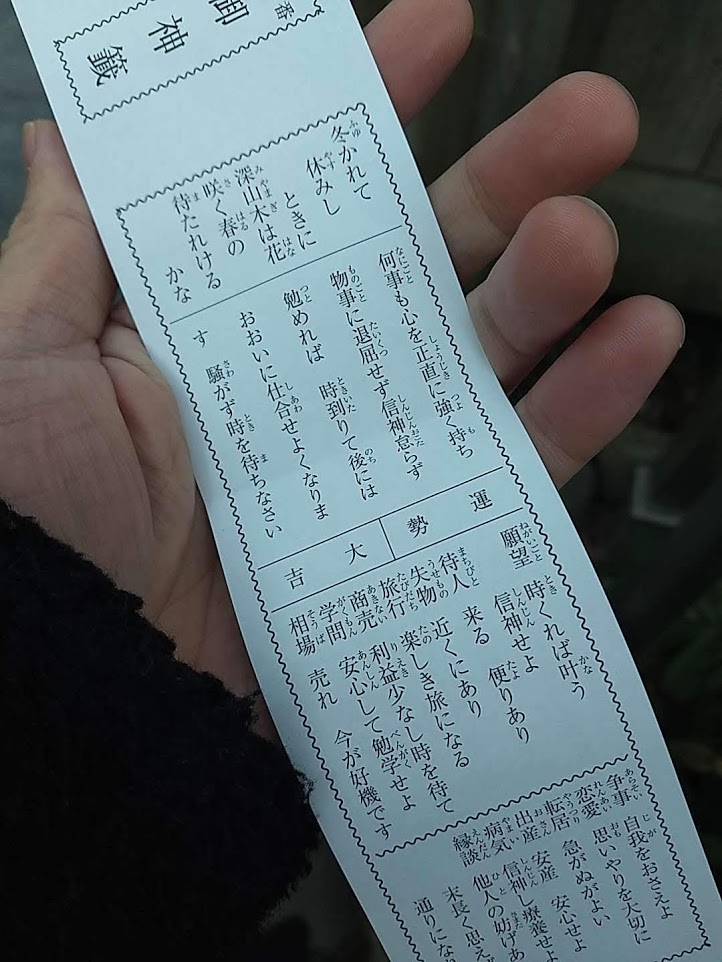 番
御神籤
冬かれて
休みし
ときに
深山木は花
咲く春の
待たれける
かな
何事も心を正直に強く持ち
物事に退屈せず信神怠らず
勉めれば 時到りて後には
おおいに仕合せよくなりま
す 騒がず時を待ちなさい
運勢 大吉
願望 時くれば叶う
信神せよ
待人 来る 便りあり
失物 近くにあり
旅行 楽しき旅になる
商売 利益少なし時を待て
学問 安心して勉学せよ
相場 売れ 今が好機です
争事 自我をおさえよ
恋愛 思いやりを大切に
転居 急がぬがよい
出産 安産 安心せよ
病気 信神し療養せよ
縁談 他人の妨げあ
末長く思え
通りにな